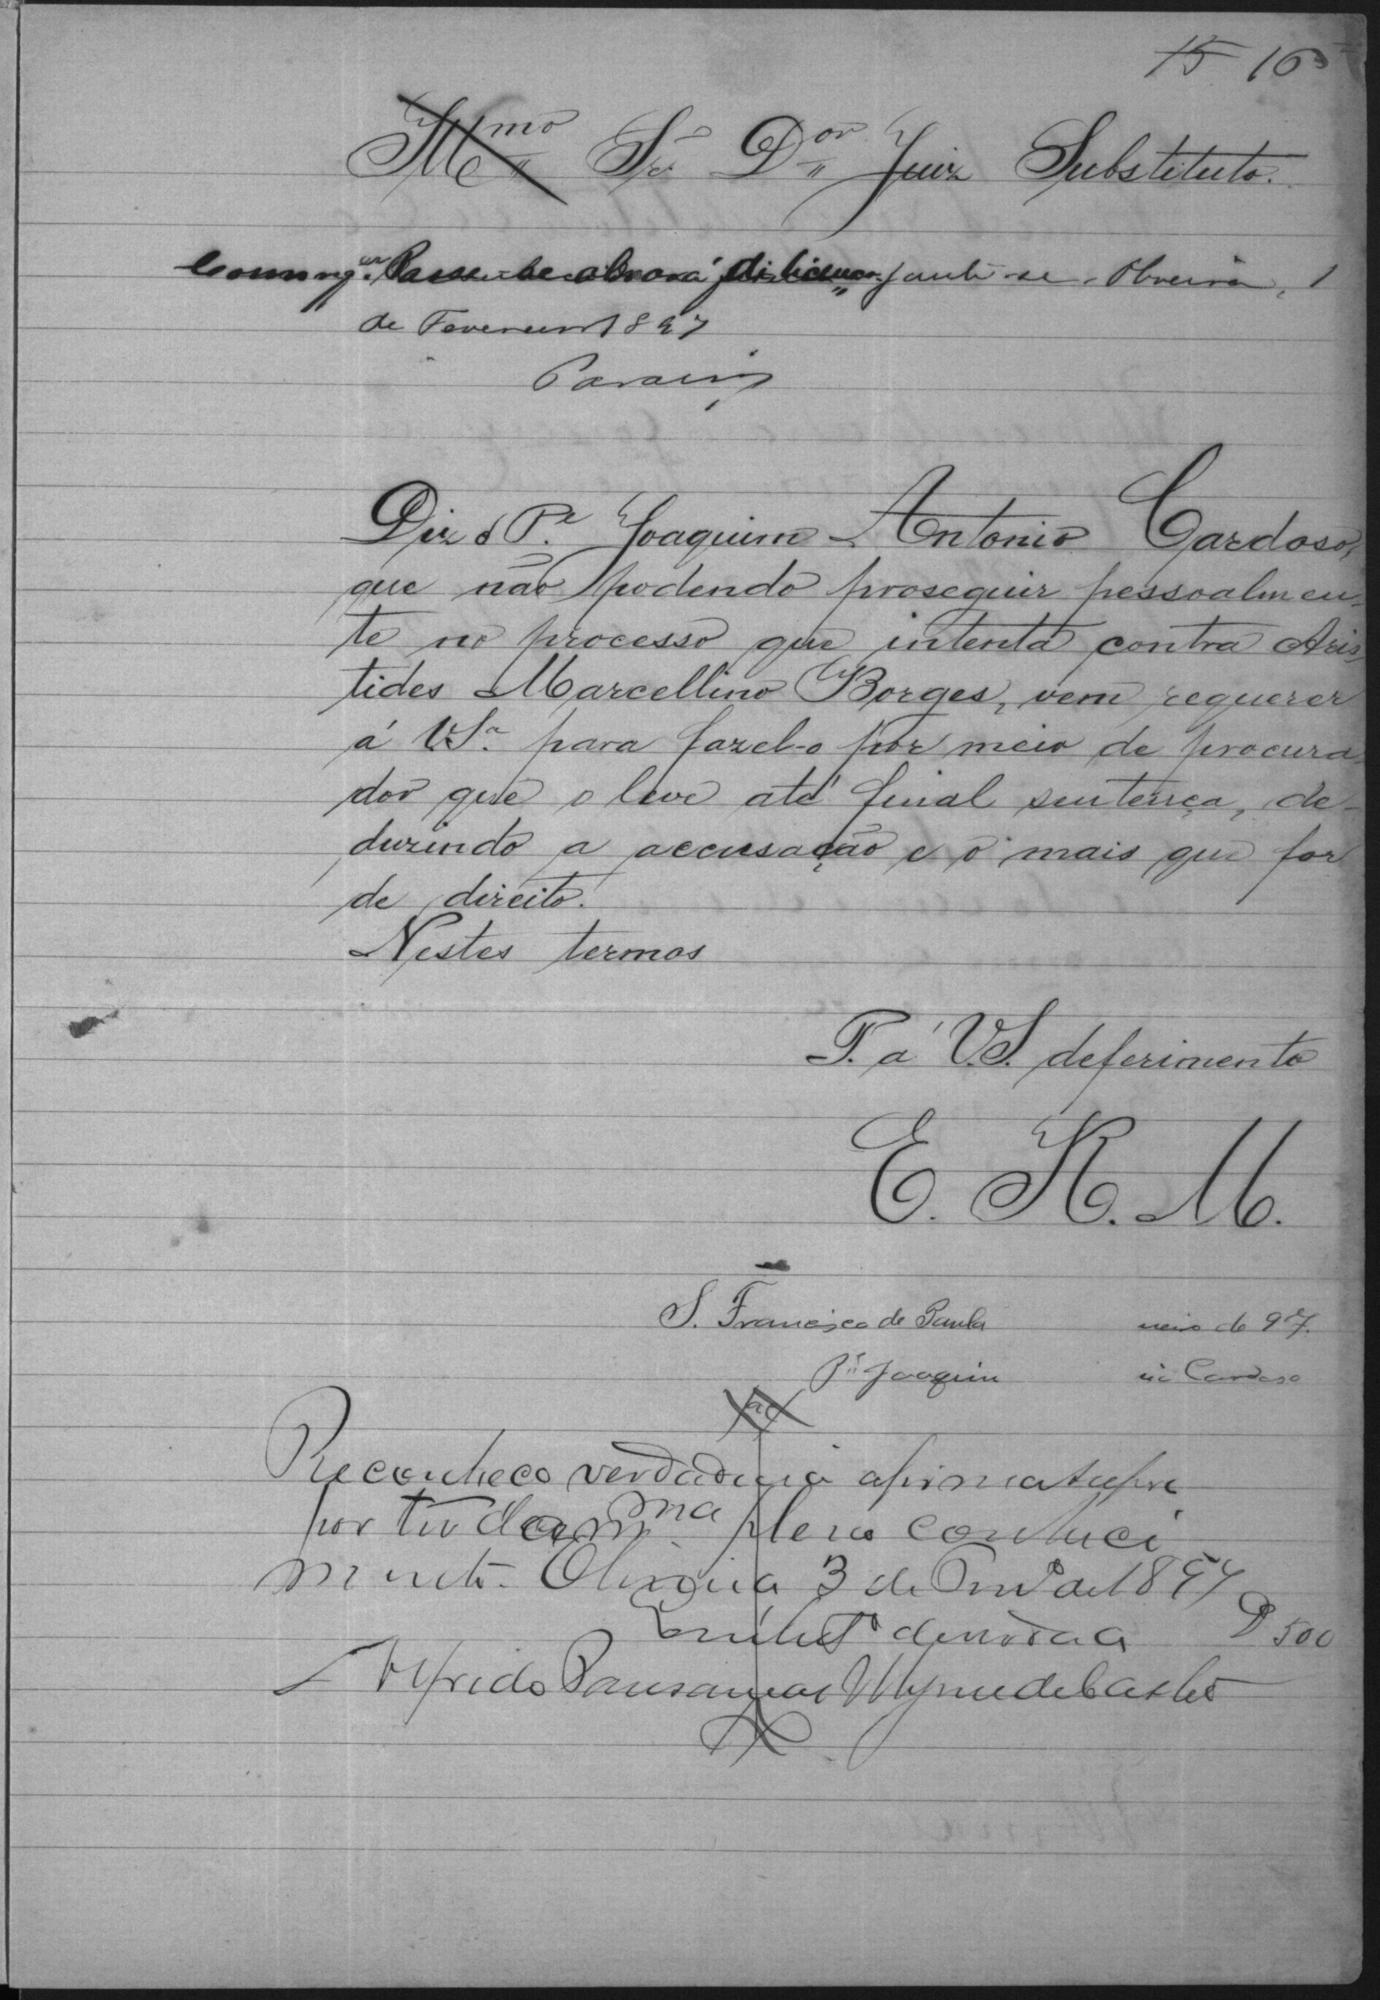 15 16
Illmo Sr. Dor Juiz Substituto.
Como req.er Passe-se alvará de licença. Junte-se. Oliveira, 1
de Fevereiro 1897
Diz o P.e Joaquim Antonio Cardoso,
que não podendo proseguir pessoalmen-
te no processo que intenta contra Aris-
tides Marcellino Borges, vem requerer
á V.Sa. para fazel-o por meio de procura-
dor que o leve até final sentença, de-
duzindo a accusação e o mais que for
de direito.
Nestes termos
P. a V.S. deferimento
E. R. M.
S. Francisco de Paula neiro de 97.
P.e Joaquim nio Cardoso
Reconheco verdadeira a firma supra
por ter della pleno conheci
mento. Oliveira 3 de Fevo de 1897
Em testo da verdade
Alfredo de Castro
500